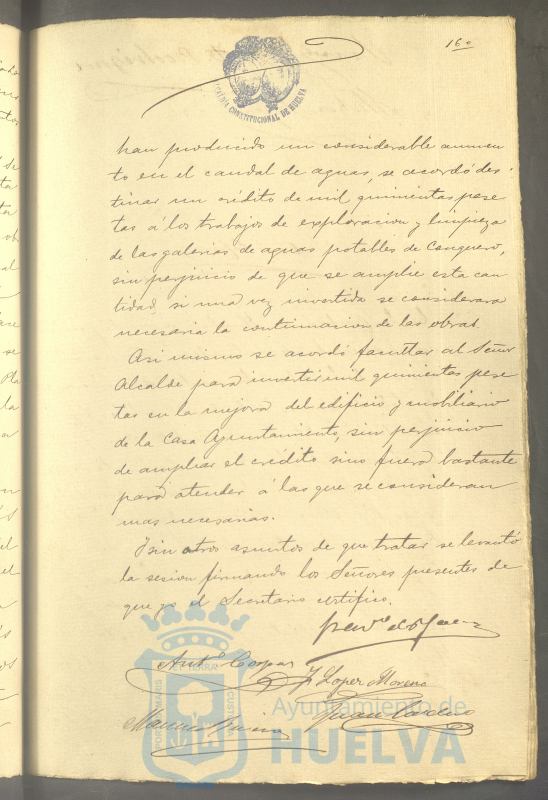 16º
ALCALDIA CONSTITUCIONAL DE HUELVA
han producido un considerable aumen-
to en el caudal de aguas, se acordó des-
tinar un crédito de mil quinientas pese-
tas á los trabajos de exploracion y limpieza
de las galerias de aguas potables de Conquero,
sin perjuicio de que se amplie esta can-
tidad, si una vez invertida se considerara
necesaria la continuacion de las obras.
Asi mismo se acordó facultar al Señor
Alcalde para invertir mil quinientas pese-
tas en la mejora del edificio y mobiliario
de la Casa Ayuntamiento, sin perjuicio
de ampliar el crédito sino fuera bastante
para atender á las que se consideran
mas necesarias.
Y sin otros asuntos de que tratar se levantó
la sesion firmando los Señores presentes de
que yo el Secretario certifico.
Antº Corpas
J. Lopez Moreno
Juan
Ayuntamiento de
HUELVA